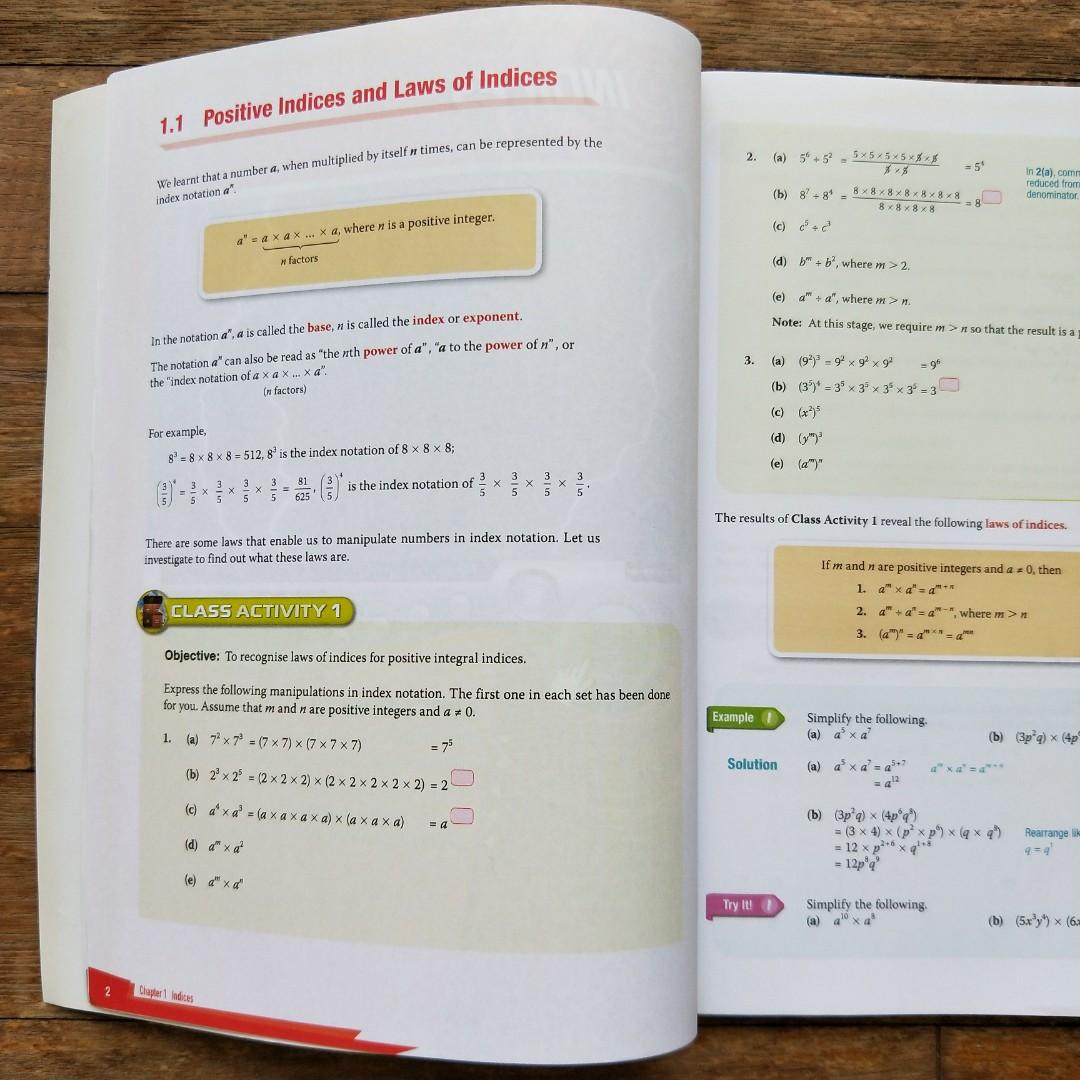 1.1 Positive Indices and Laws of Indices
We learnt that a number a, when multiplied by itself n times, can be represented by the
index notation aⁿ.
aⁿ = a × a × ... × a, where n is a positive integer.
n factors
In the notation aⁿ, a is called the base, n is called the index or exponent.
The notation aⁿ can also be read as "the nth power of a", "a to the power of n", or
the "index notation of a × a × ... × a".
(n factors)
For example,
8³ = 8 × 8 × 8 = 512, 8³ is the index notation of 8 × 8 × 8;
(3/5)⁴ = 3/5 × 3/5 × 3/5 × 3/5 = 81/625, (3/5)⁴ is the index notation of 3/5 × 3/5 × 3/5 × 3/5.
There are some laws that enable us to manipulate numbers in index notation. Let us
investigate to find out what these laws are.
CLASS ACTIVITY 1
Objective: To recognise laws of indices for positive integral indices.
Express the following manipulations in index notation. The first one in each set has been done
for you. Assume that m and n are positive integers and a ≠ 0.
1. (a) 7² × 7³ = (7 × 7) × (7 × 7 × 7) = 7⁵
(b) 2³ × 2⁵ = (2 × 2 × 2) × (2 × 2 × 2 × 2 × 2) = 2
(c) a⁴ × a³ = (a × a × a × a) × (a × a × a) = a
(d) aᵐ × a²
(e) aᵐ × aⁿ
2 Chapter 1 Indices
2. (a) 5⁶ ÷ 5² = 5 × 5 × 5 × 5 × 5 × 5 / 5 × 5 = 5⁴
In 2(a),
reduced from
denominator.
(b) 8⁷ ÷ 8⁴ = 8 × 8 × 8 × 8 × 8 × 8 × 8 / 8 × 8 × 8 × 8 = 8
(c) c⁵ ÷ c³
(d) bᵐ ÷ b², where m > 2.
(e) aᵐ ÷ aⁿ, where m > n.
Note: At this stage, we require m > n so that the result is a
3. (a) (9²)³ = 9² × 9² × 9² = 9⁶
(b) (3⁵)⁴ = 3⁵ × 3⁵ × 3⁵ × 3⁵ = 3
(c) (x²)⁵
(d) (yᵐ)³
(e) (aᵐ)ⁿ
The results of Class Activity 1 reveal the following laws of indices.
If m and n are positive integers and a ≠ 0, then
1. aᵐ × aⁿ = aᵐ⁺ⁿ
2. aᵐ ÷ aⁿ = aᵐ⁻ⁿ, where m > n
3. (aᵐ)ⁿ = aᵐˣⁿ = aᵐⁿ
Example 1 Simplify the following.
(a) a⁵ × a⁷ (b) (3p²q) × (4p⁶
Solution (a) a⁵ × a⁷ = a⁵⁺⁷ aᵐ × aⁿ = aᵐ⁺ⁿ
= a¹²
(b) (3p²q) × (4p⁶q⁸)
= (3 × 4) × (p² × p⁶) × (q × q⁸) Rearrange
= 12 × p²⁺⁶ × q¹⁺⁸ q = q¹
= 12p⁸q⁹
Try It! 1 Simplify the following.
(a) a¹⁰ × a⁸ (b) (5x³y⁴) × (6